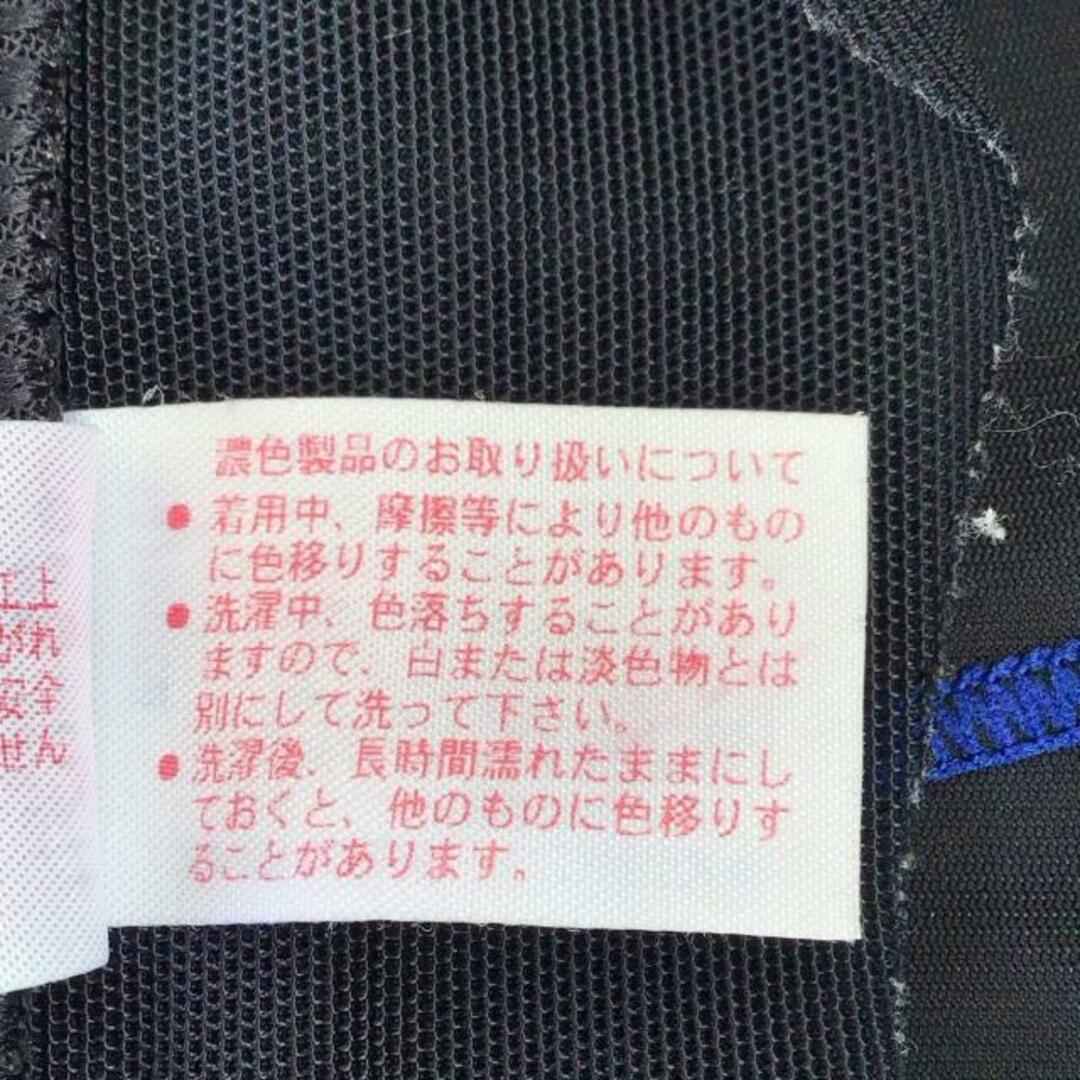 濃色製品のお取り扱いについて
●着用中、摩擦等により他のもの
に色移りすることがあります。
●洗濯中、色落ちすることがあり
ますので、白または淡色物とは
別にして洗って下さい。
●洗濯後、長時間濡れたままにし
ておくと、他のものに色移りす
ることがあります。
上
がれ
安全
せん